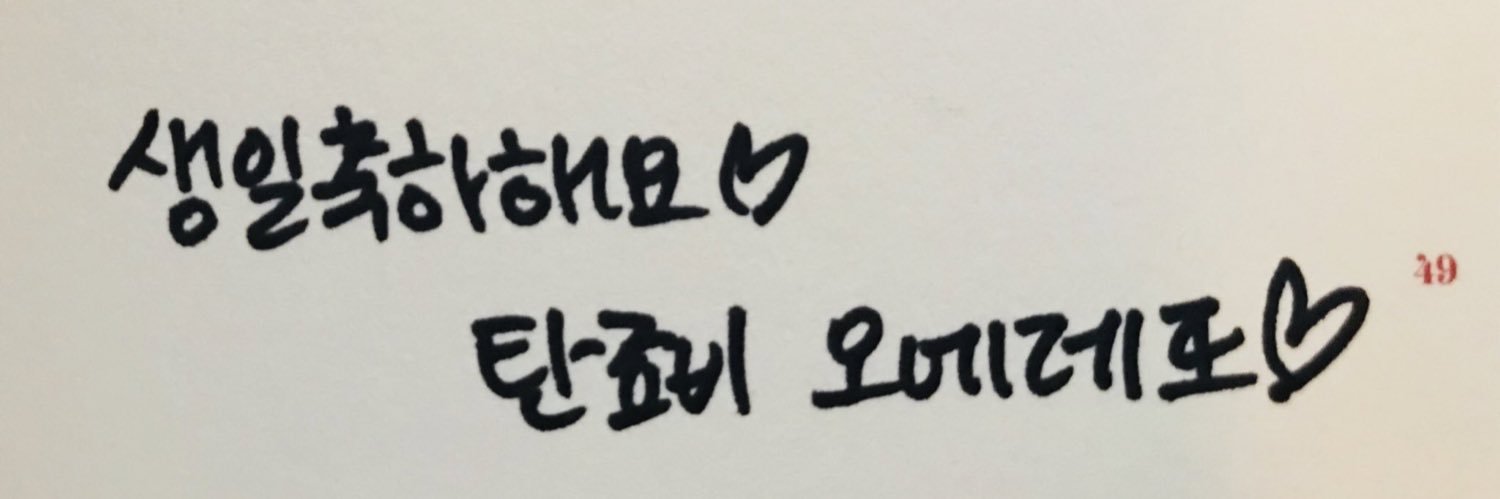 생일축하해요♡
탄죠비 오메데토♡
49